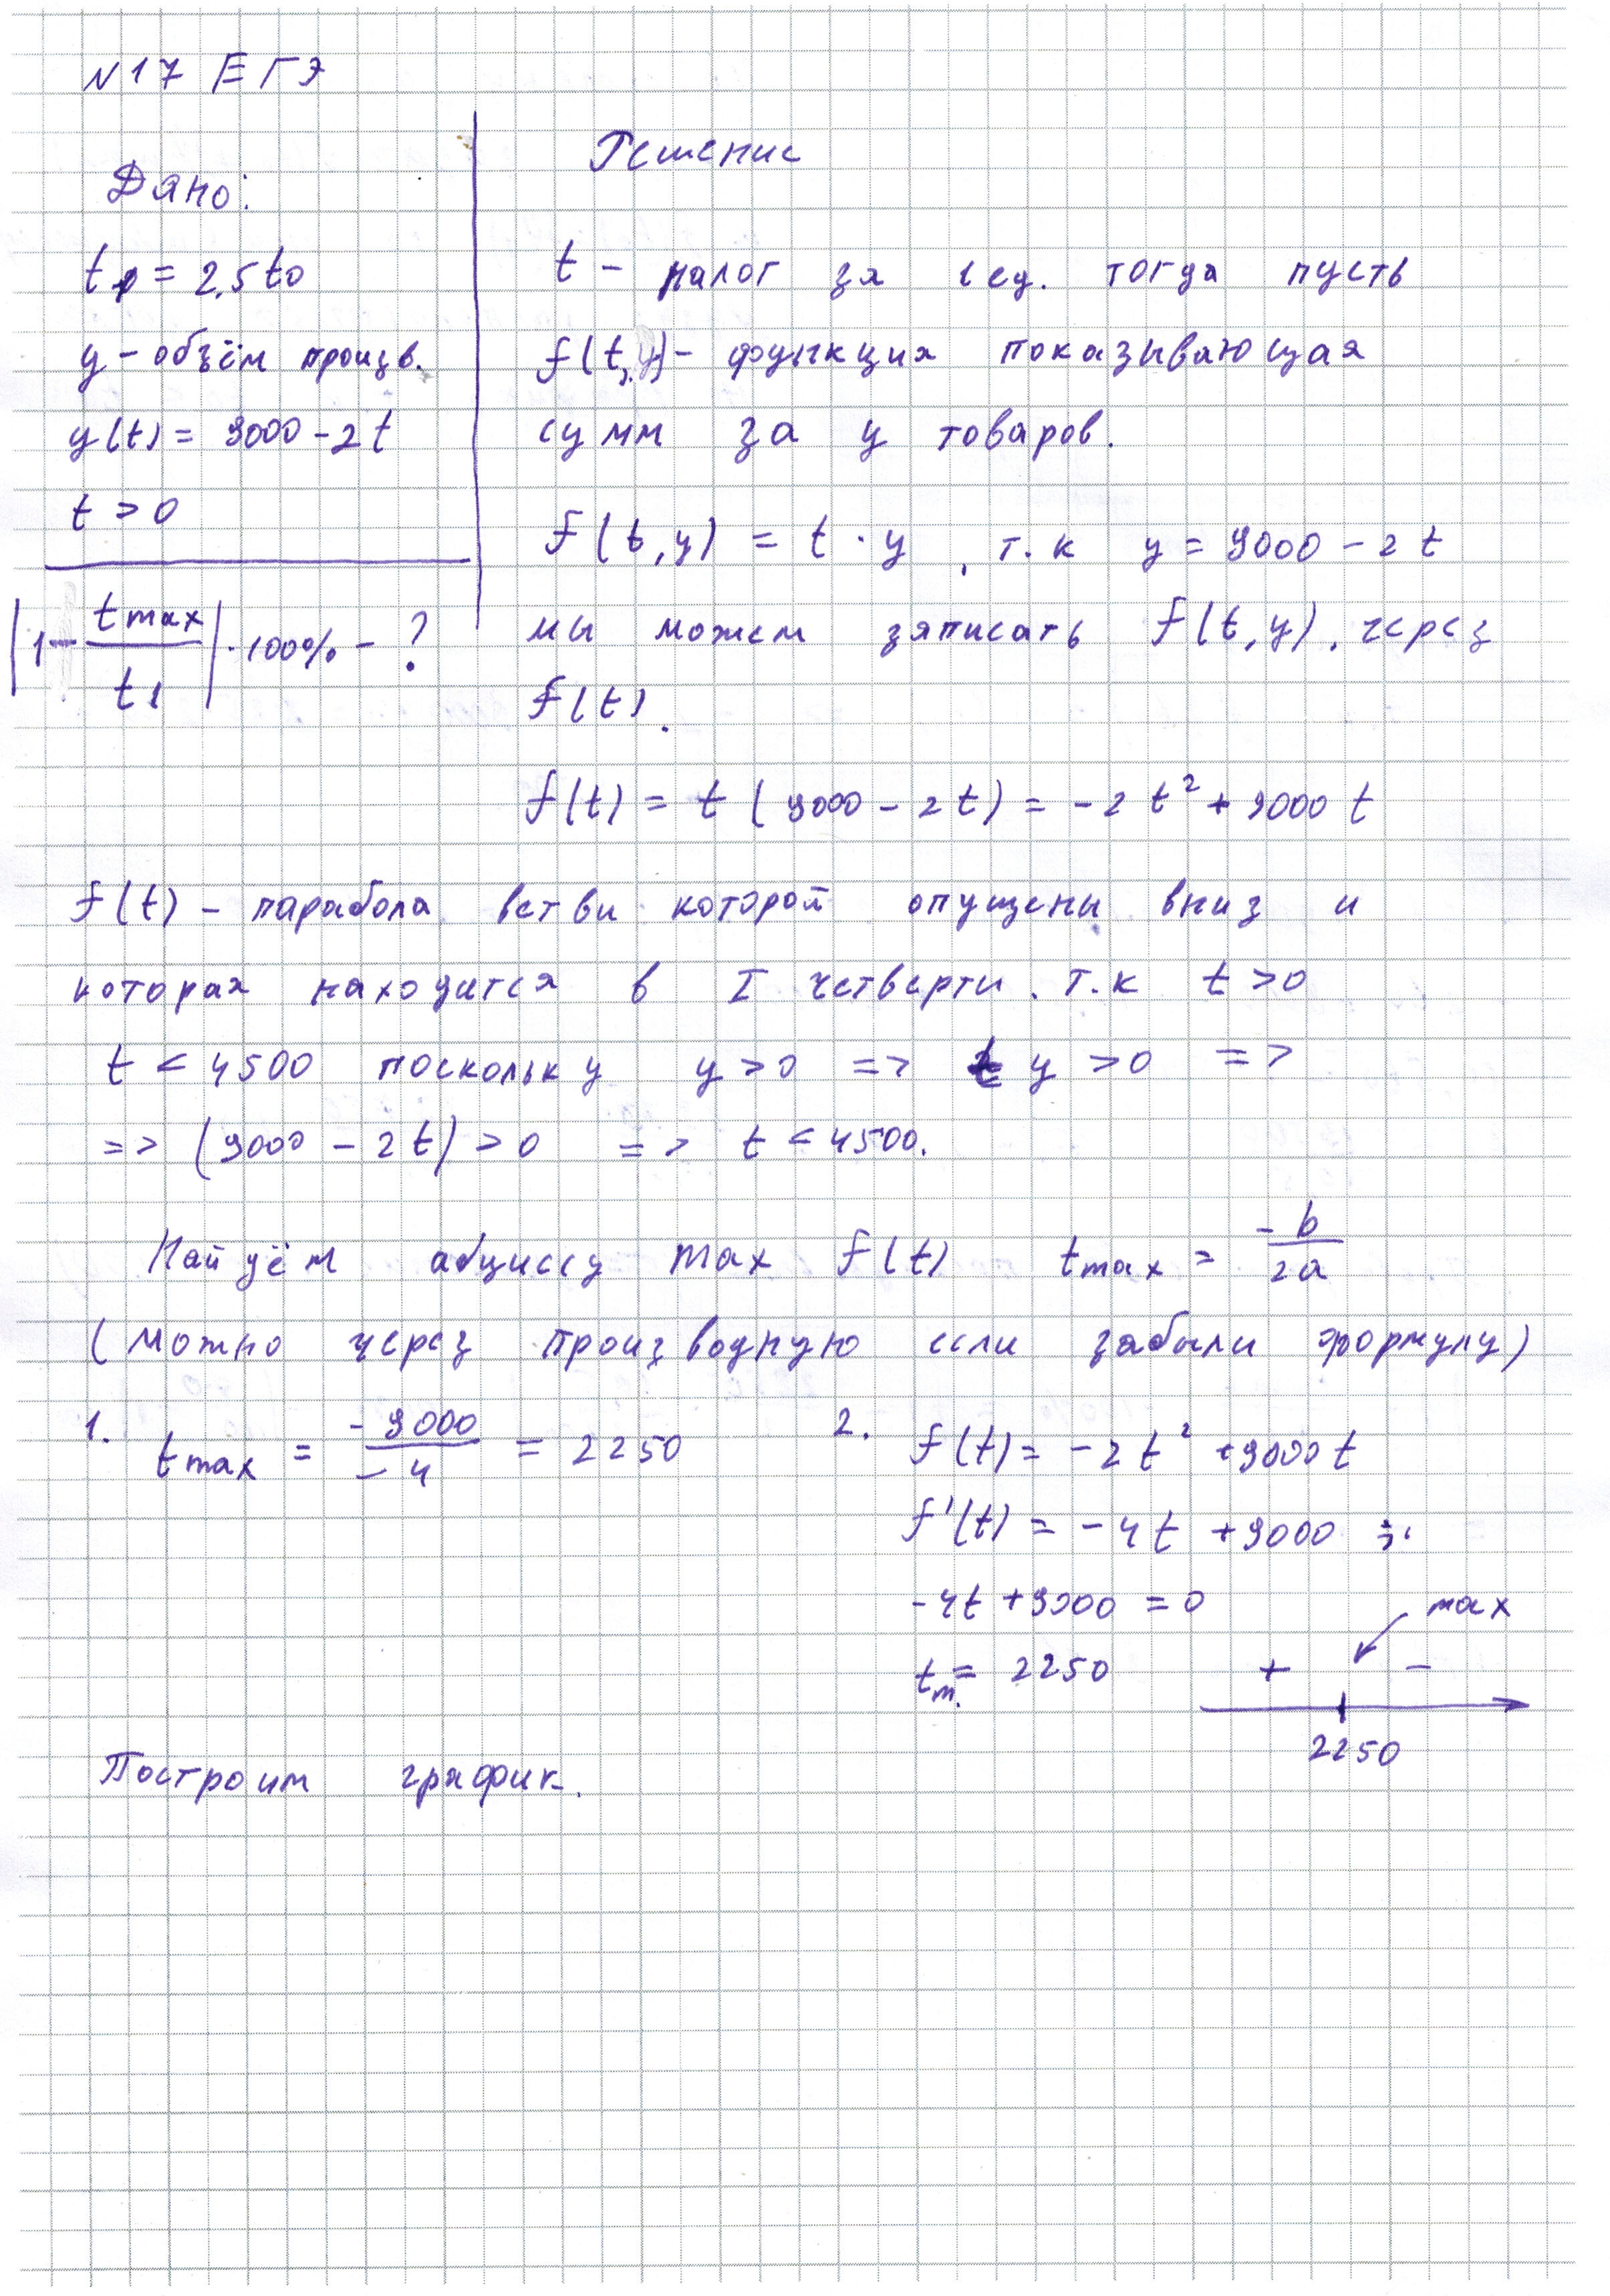 N17 ЕГЭ
Дано:
t₁ = 2,5t₀
y – объём произв.
y(t) = 9000 – 2t
t > 0
|1 – tmax / t1| · 100% – ?
Решение
t – налог за 1 ед. тогда пусть
f(t,y) – функция показывающая
сумм за y товаров.
f(t,y) = t · y , т.к y = 9000 – 2t
мы можем записать f(t,y), через
f(t).
f(t) = t (9000 – 2t) = –2t² + 9000t
f(t) – парабола ветви которой опущены вниз и
которая находится в I четверти. т.к t > 0
t < 4500 поскольку y > 0 => y > 0 =>
=> (9000 – 2t) > 0 => t < 4500.
Найдём абциссу max f(t) tmax = –b / 2a
(можно через производную если забыли формулу)
1. tmax = –9000 / –4 = 2250
2. f(t) = –2t² + 9000t
f'(t) = –4t + 9000
–4t + 9000 = 0
tm = 2250
max
+ –
2250
Построим график.